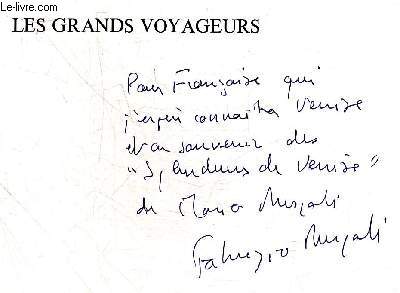 Le-livre.com
LES GRANDS VOYAGEURS
Pour Françoise qui
j'espère connaîtra Venise
et en souvenir des
"Splendeurs de Venise"
de
Fabrizio